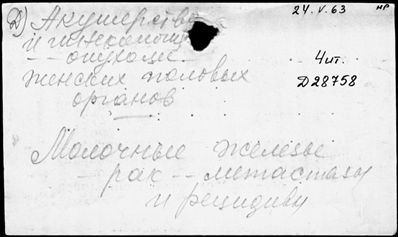 Д) Акушерство 24.V.63 нр
и гинекология
-- опухоли
женских половых 4 чит.
органов Д28758
Молочные железы
-- рак -- метастазы
и рецидивы